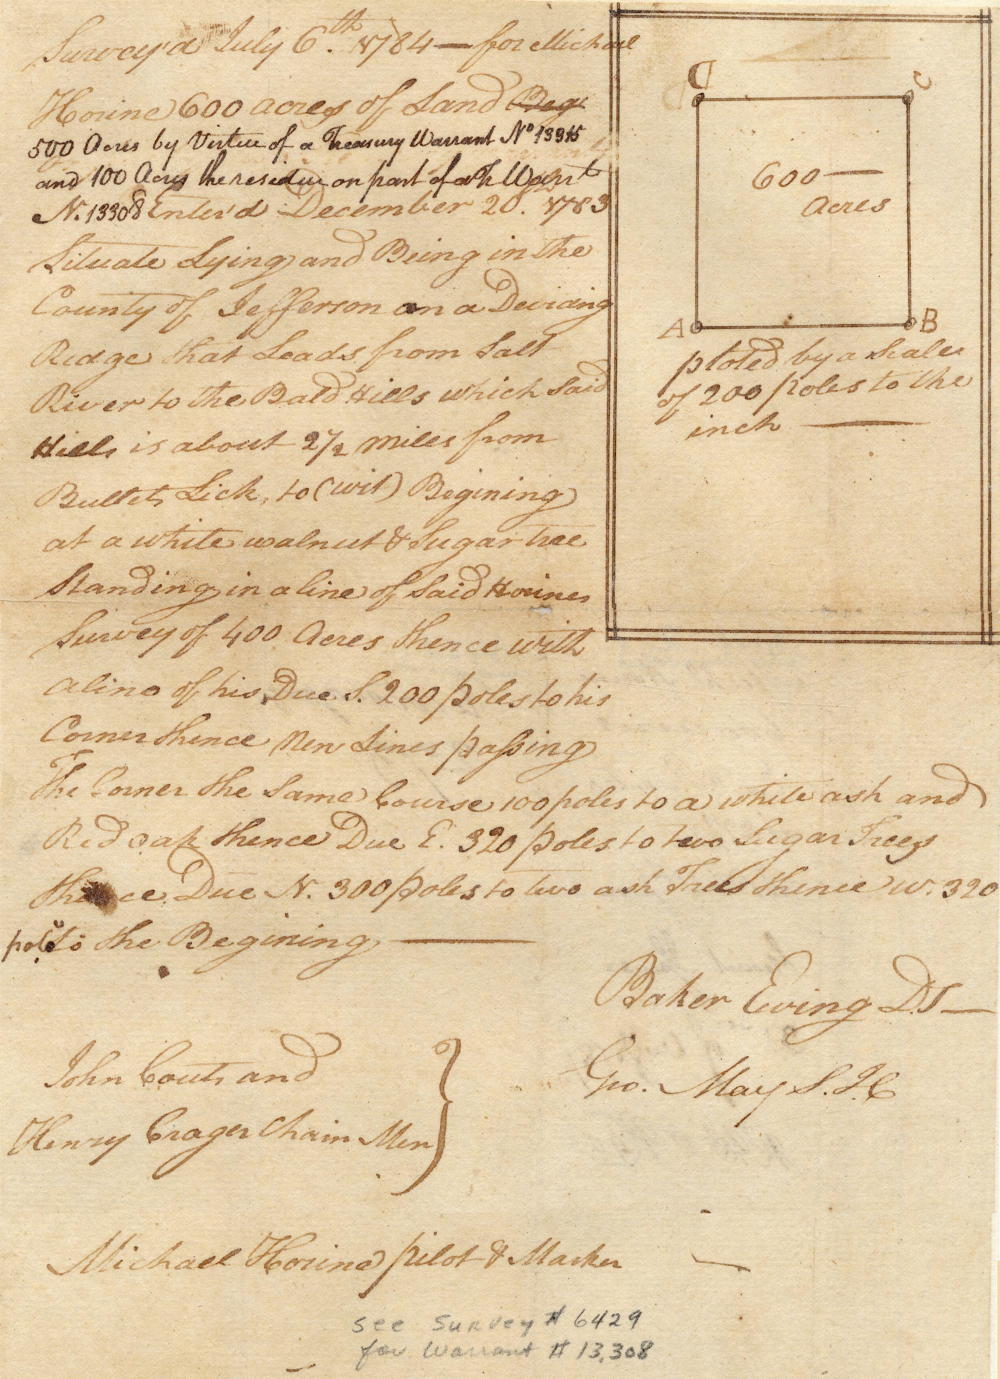 Survey'd July 6th. 1784 — for Michael
Horine 600 acres of Land Beg:
500 Acres by Virtue of a Treasury Warrant No 13315
and 100 Acres the residue on part of a Tr Warrt
N. 13308 Enter'd December 20. 1783
Situate Lying and Being in the
County of Jefferson on a Deviding
Ridge that Leads from Salt
River to the Bald Hills which said
Hills is about 2 1/2 miles from
Bullets Lick, to (wit) Begining
at a white walnut & Sugar tree
Standing in a line of Said Horines
Survey of 400 Acres thence with
a line of his Due S. 200 poles to his
Corner thence New Lines passing
The Corner the Same Course 100 poles to a white ash and
Red oak thence Due E. 320 poles to two Sugar Trees
thence Due N. 300 poles to two ash Trees thence W. 320
poles to the Begining —
D
C
600 —
Acres
A
B
ploted by a Scale
of 200 poles to the
inch —
Baker Ewing D.S —
Geo. May S.J.C
John Couts and
Henry Crager Chain Men
Michael Horine pilot & Marker —
see Survey # 6429
for Warrant # 13,308